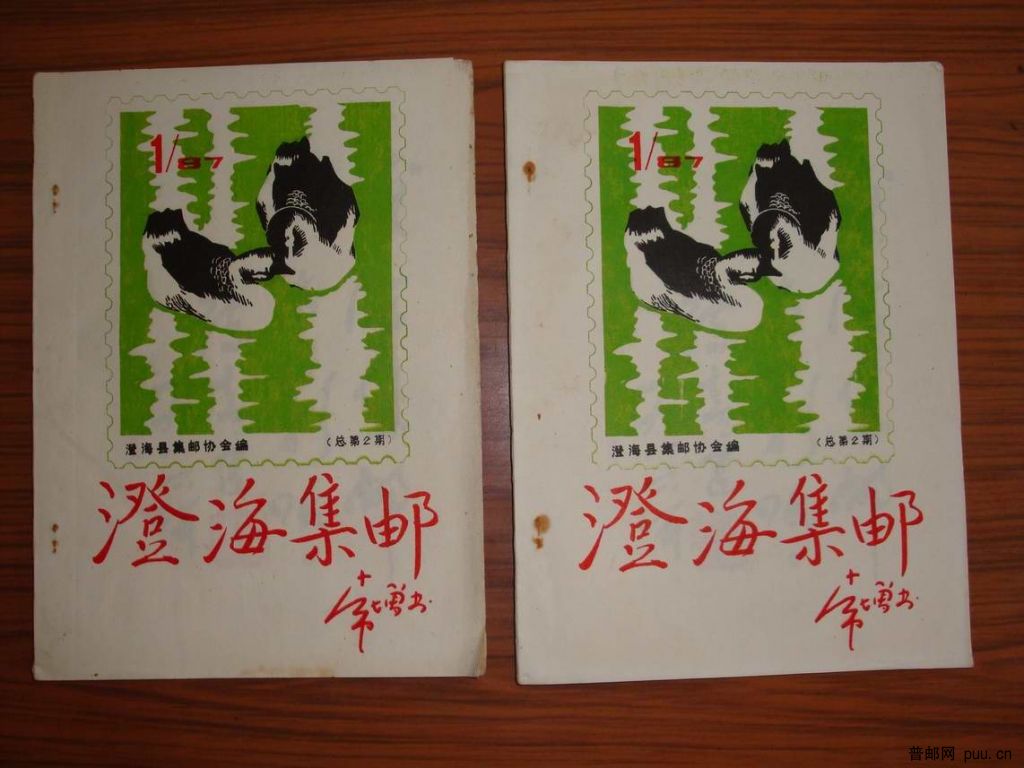 1/87
澄海县集邮协会编
(总第2期)
澄海集邮
1/87
澄海县集邮协会编
(总第2期)
澄海集邮
普邮网 puu.cn